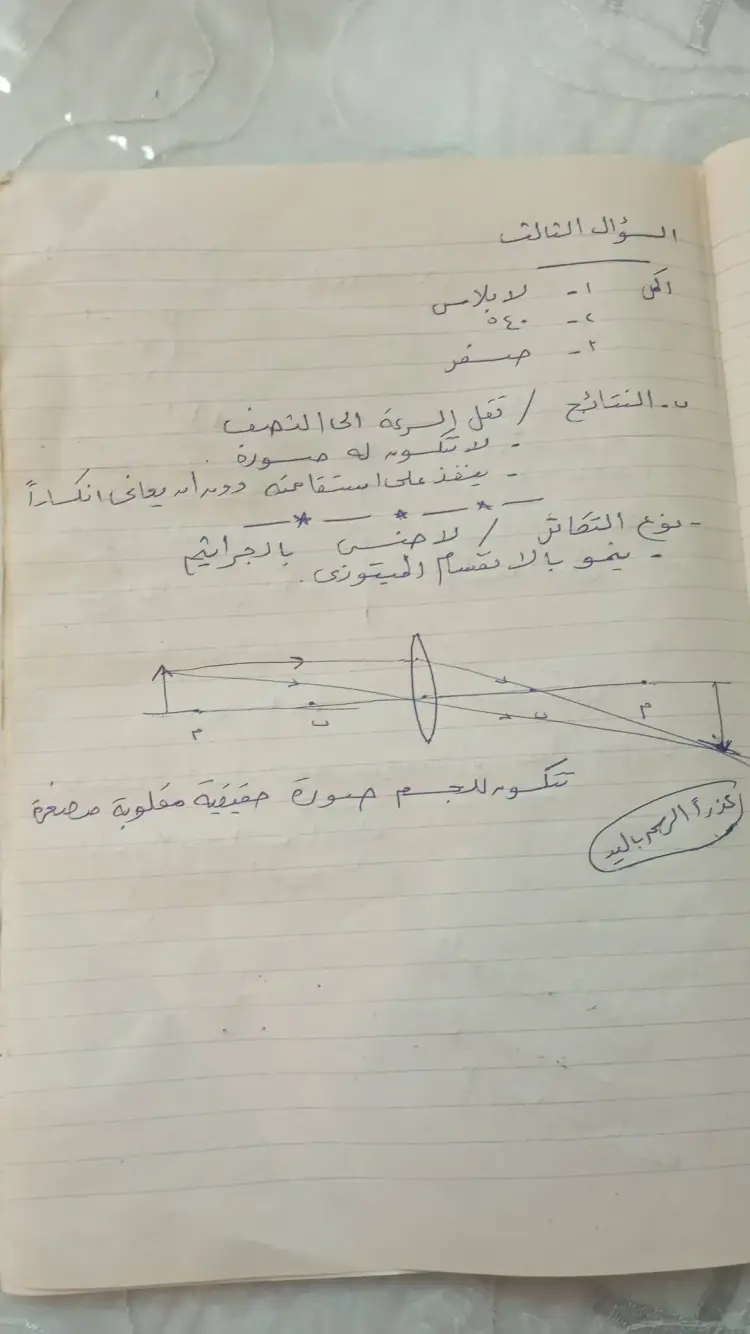 السؤال الثالث
اكمل ١- لابلاس
٢- ٥٤٠
٣- صفر
ب- النتائج / تقل السرعة الى النصف
- لا تتكون له صورة .
- ينفذ على استقامته دون ان يعانى انكساراً
- نوع التكاثر / لا جنسى بالجراثيم
- ينمو بالانقسام الميتوزى .
م ب ب م
تتكون للجسم صورة حقيقية مقلوبة مصغرة
عذراً الرسم باليد